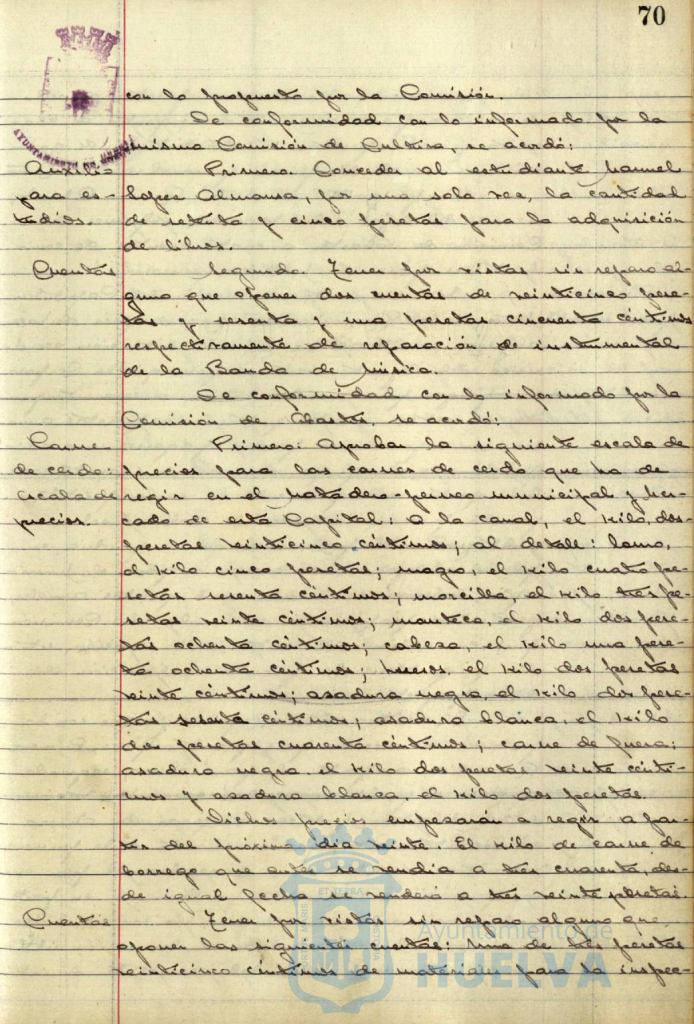 70
AYUNTAMIENTO DE HUELVA
con lo propuesto por la Comisión.
De conformidad con lo informado por la
misma Comisión de Cultura, se acordó:
Auxilio
para es-
tudios.
Primero. Conceder al estudiante Manuel
Lopez Almansa, por una sola vez, la cantidad
de setenta y cinco pesetas para la adquisición
de libros.
Cuentas
Segundo. Tener por vistas sin reparo al-
guno que oponer dos cuentas de veinticinco pese-
tas y sesenta y una pesetas cincuenta céntimos
respectivamente de reparación de instrumental
de la Banda de Música.
De conformidad con lo informado por la
Comisión de Abastos, se acordó:
Carne
de cerdo:
escala de
precios.
Primero: Aprobar la siguiente escala de
precios para las carnes de cerdo que ha de
regir en el Matadero-permeo municipal y Mer-
cado de esta Capital: a la canal, el kilo, dos
pesetas veinticinco céntimos; al detall: lomo,
el kilo cinco pesetas; magro, el kilo cuatro pe-
setas sesenta céntimos; morcilla, el kilo tres pe-
setas veinte céntimos; manteca, el kilo dos pese-
tas ochenta céntimos; cabeza, el kilo una pese-
ta ochenta céntimos; huesos, el kilo dos pesetas
veinte céntimos; asadura negra, el kilo dos pese-
tas sesenta céntimos; asadura blanca, el kilo
dos pesetas cuarenta céntimos; carne de fuera:
asadura negra, el kilo dos pesetas veinte cénti-
mos y asadura blanca, el kilo dos pesetas.
Dichos precios empezarán a regir a par-
tir del próximo dia veinte. El kilo de carne de
borrego que antes se vendia a tres cuarenta, des-
de igual fecha se venderá a tres veinte pesetas.
Cuentas
Tener por vistas sin reparo alguno que
oponer las siguientes cuentas: Una de tres pesetas
veinticinco céntimos de materiales para la inspec-
Ayuntamiento de
HUELVA